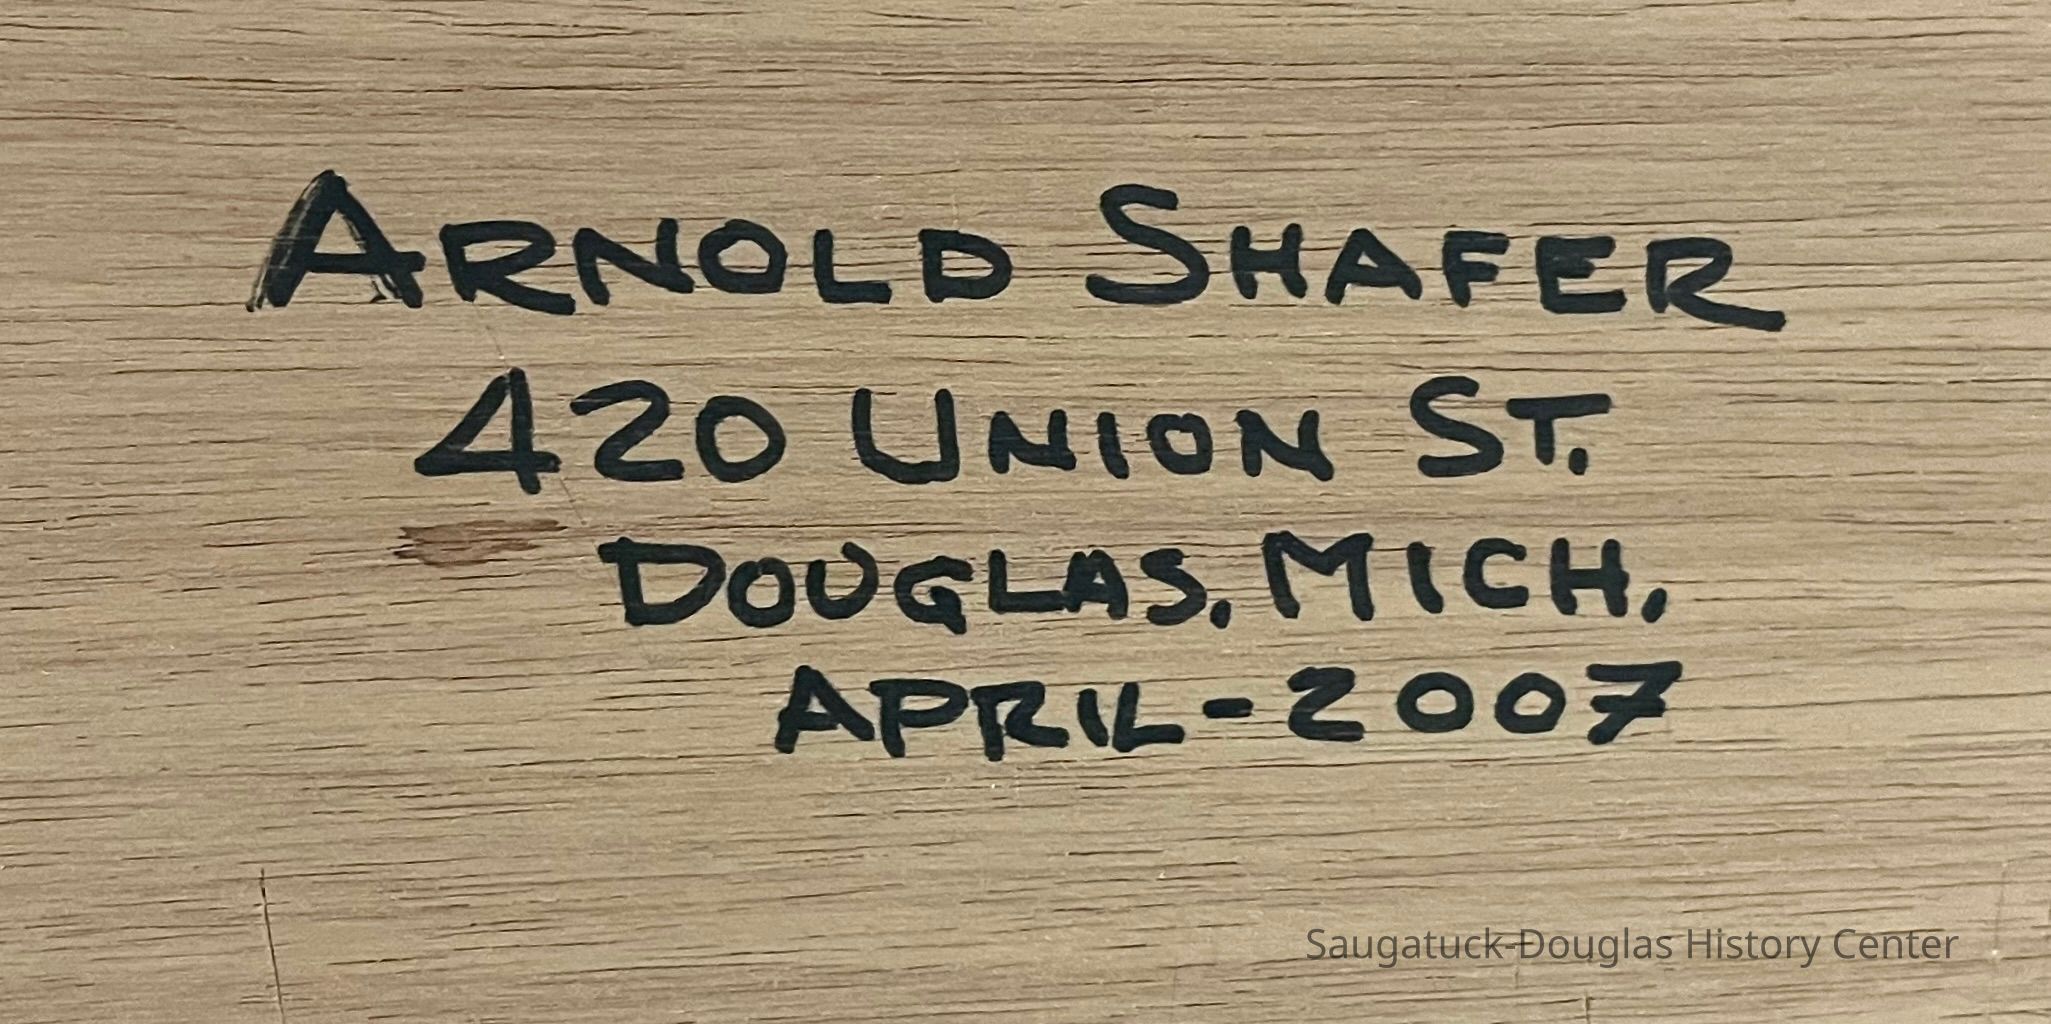 ARNOLD SHAFER
420 UNION ST.
DOUGLAS, MICH.
APRIL-2007
Saugatuck-Douglas History Center